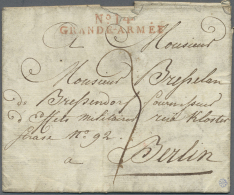 No. 1er
GRANDE ARMÉE
A Monsieur
Monsieur Bresselau
de Bressendorf fournisseur
d'Effets militaires rue Kloster
No. 92.
a Berlin